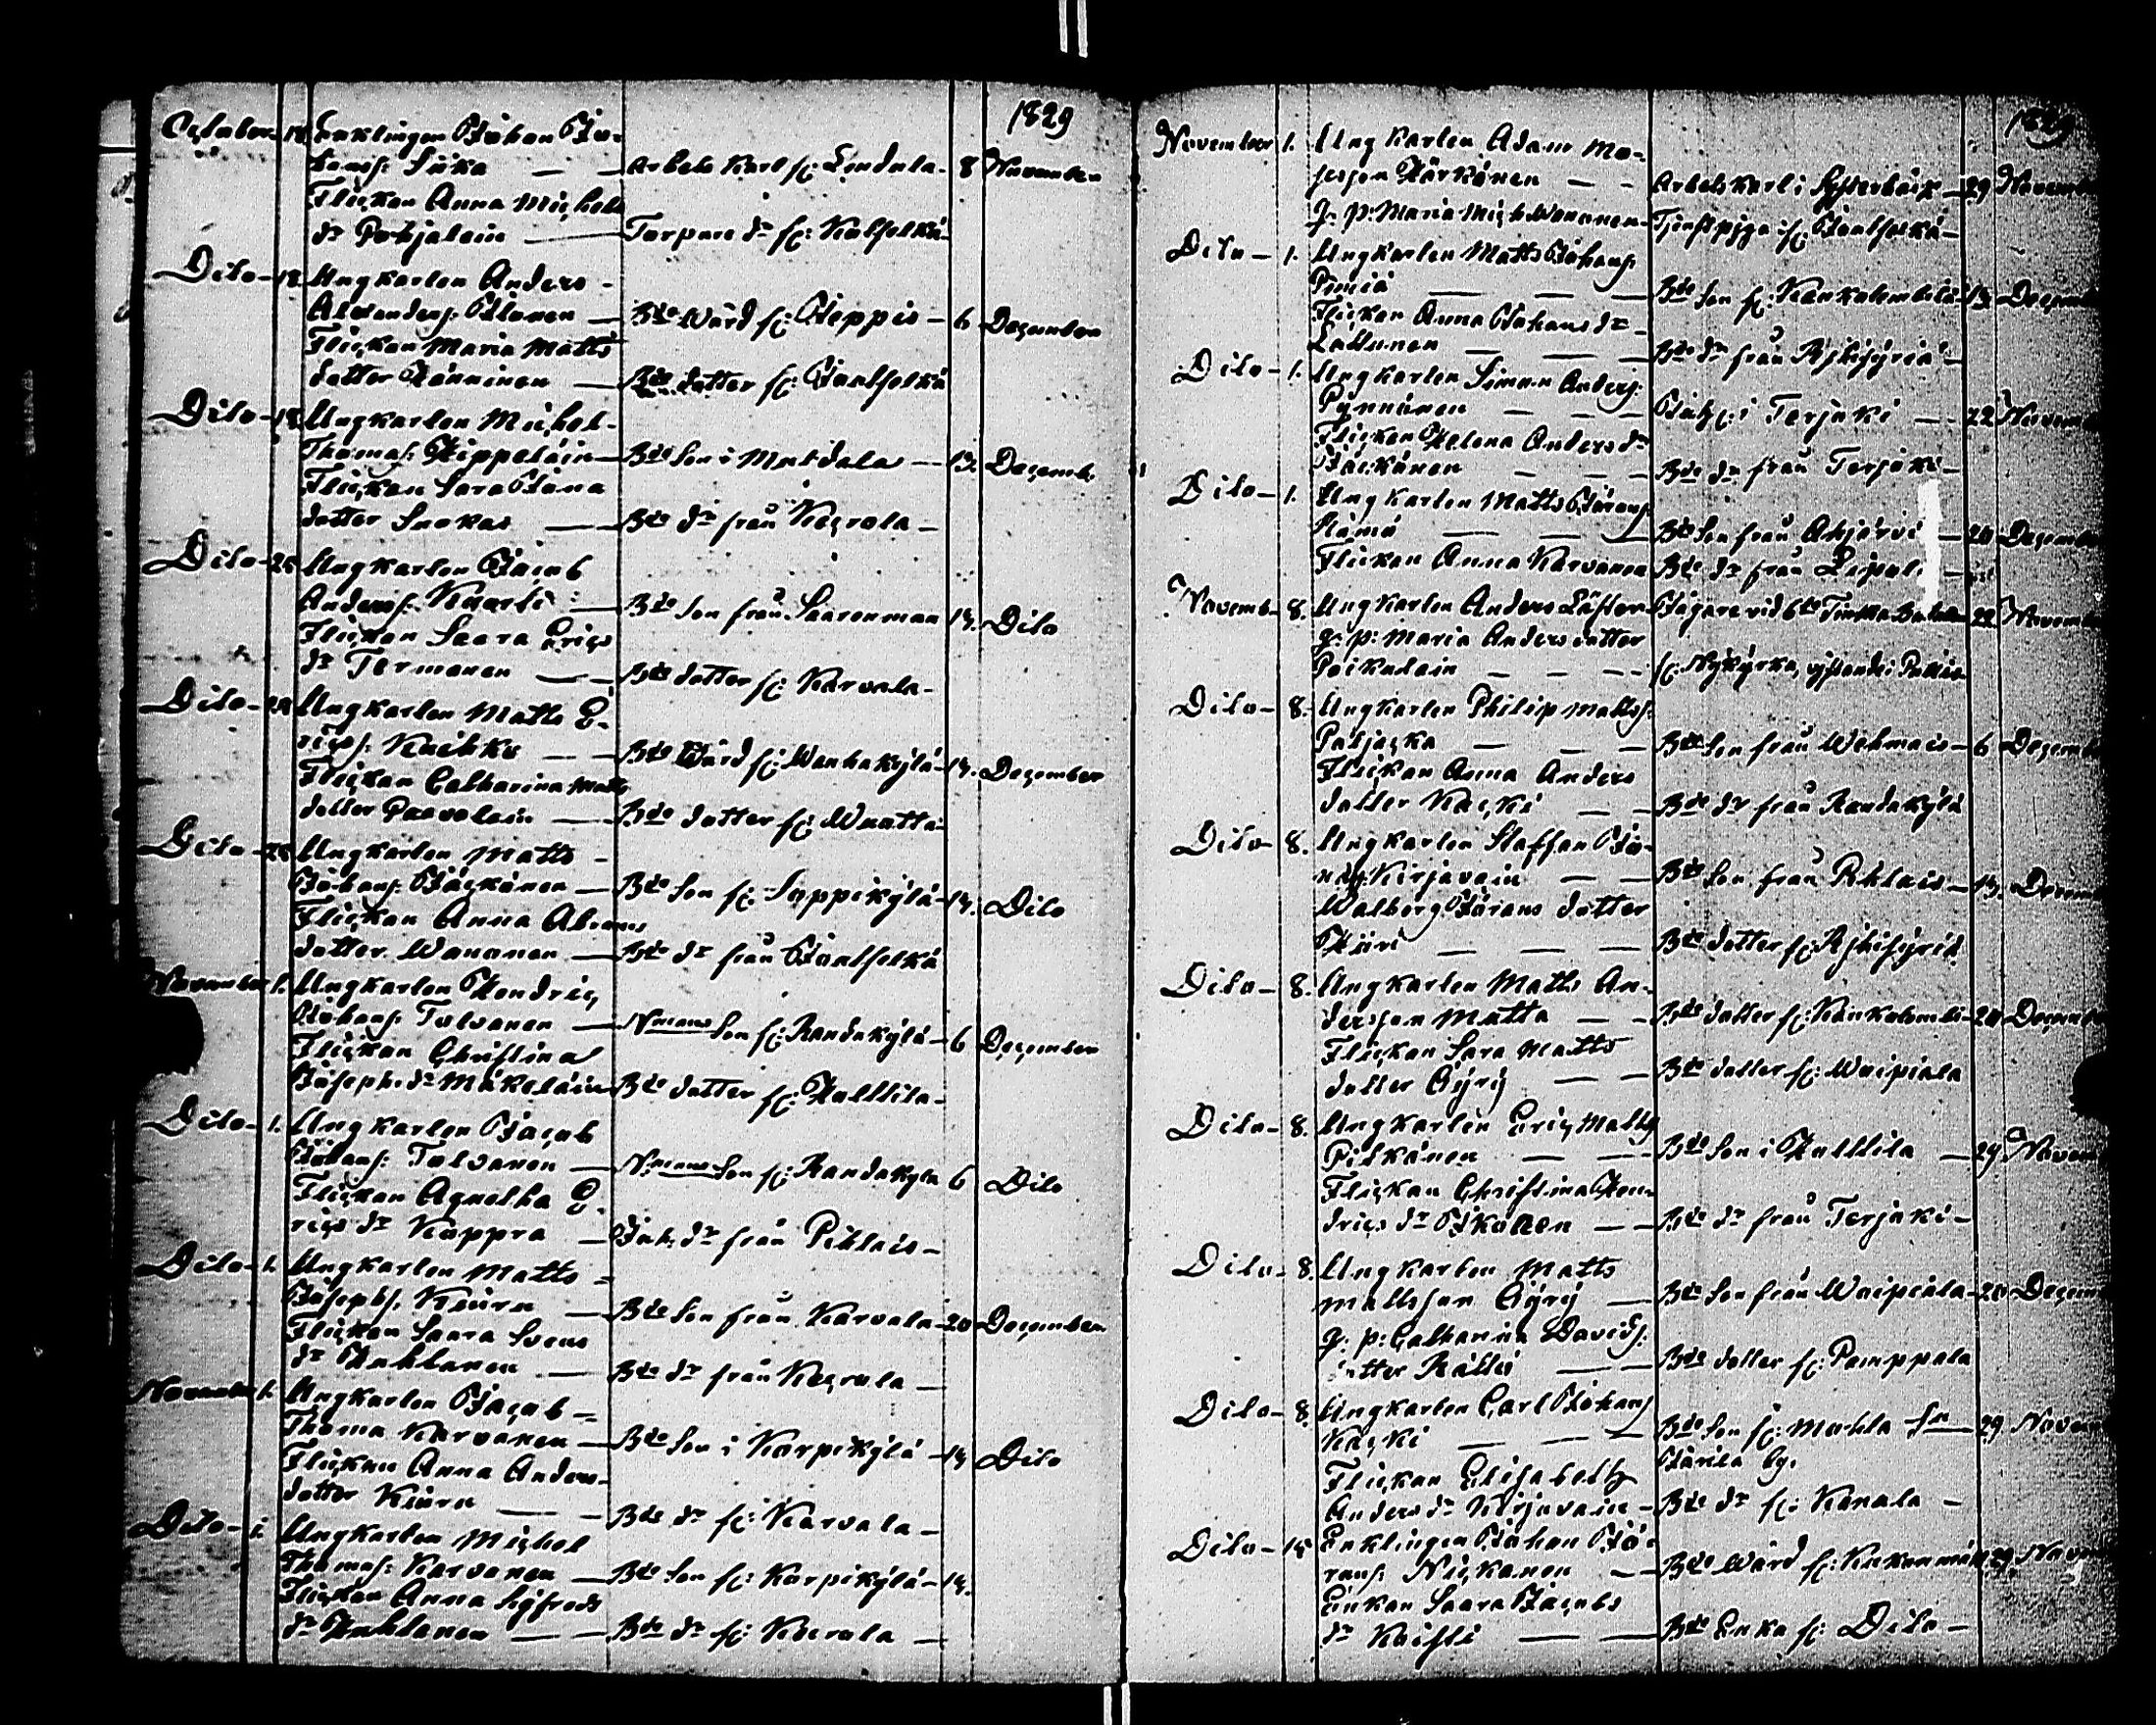 1829
October 18 Enklingen Johan Jo-
hans: Suka — — Arbets Karl fr: Lindula - 8 November
Flickan Anna Michels
dr Pohjalain — Torpare dr fr: Kaltselkä
Dito - 18 Ungkarlen Anders -
Alexanders: Ilonen — Bde Wärd fr: Seppis - 6 December
Flickan Maria Matts
dotter Jänninen — Bde dotter fr: Jautselkä
Dito - 18 Ungkarlen Michel -
Thomas: Hippeläin — Bde Son i Mutdala — 13. Decemb.
Flickan Sara Jöna
dotter Suokas — Bde dr från Kacrola -
Dito - 25 Ungkarlen Jacob
Anders: Kaarle — Bde Son från Saarenmaa 13. Dito
Flickan Saara Erics
dr Termonen — Bde dotter fr: Karvala -
Dito - 25 Ungkarlen Matts E-
rics: Kaukko — Bde Wärd fr: Wanhakylä - 13. December
Flickan Catharina Matts
dotter Paavolain — Bde dotter fr: Wuotta
Dito - 25 Ungkarlen Matts -
Johans: Jäckönen — Bde Son fr: Seppikylä - 13. Dito
Flickan Anna Abrams
dotter Wanonen — Bde dr från Jautselkä
November 1. Ungkarlen Hendric
Johans: Tolvanen — Nmans Son fr: Randakylä - 6 December
Flickan Christina
Joseps dr Mäkeläin Bde dotter fr: Hulttila -
Dito - 1. Ungkarlen Jacob
Johans: Tolvanen — Nmans Son fr: Randakylä 6 Dito
Flickan Agnetha E-
rics dr Koppra — Inh. dr från Pihlais -
Dito - 1. Ungkarlen Matts -
Josephs: Kiuru — Bde Son från Karvala - 20 December
Flickan Saara Svens
dr Huhtanen — Bde dr från Kacrola —
November 1. Ungkarlen Jacob -
Thoma Karvanen — Bde Son i Karpikylä - 13 Dito
Flickan Anna Anders-
dotter Kiuru — Bde dr fr: Karvala -
Dito - 1. Ungkarlen Michel
Thomas: Karvanen — Bde Son fr: Karpikylä - 13.
Flickan Anna Sigfreds
dr Huhtanen — Bde dr fr: Kacrola —
1829
November 1. Ungkarlen Adam Mo-
sesson Kärkönen — Arbets karl i Systerbäck - 29 Novemb
q: p: Maria Mich: Wanonen - Tjenst piga fr: Jautselkä -
Dito - 1. Ungkarlen Matts Johans:
Pimiä — Bde Son fr: Känkalembilä 13 Decemb
Flickan Anna Johans dr
Lattunen — Bde dr från Ristisyriä -
Dito - 1. Ungkarlen Simon Anders:
Pynnönen — Inh: i Terjoki — 22 Novemb
Flickan Helena Anders dr
Jäckönen — Bde dr från Terjoki -
Dito - 1. Ungkarlen Matts Görans
Rämä — Bde Son från Ahjärvi - 20 December
Flickan Anna Karvanen Bde dr från Lipola -
Novemb. 8. Ungkarlen Anders Löfster Jägare vid 6te Finska Batal: 22 Novemb
q: p: Maria Anders dotter
Poikalain — fr: Nykyrka, vistande i Pullis
Dito - 8. Ungkarlen Philip Matts:
Patjacka — Bde Son från Wehmais - 6 Decemb
Flickan Anna Anders
dotter Kacki — Bde dr från Randakylä
Dito - 8. Ungkarlen Staffan Jö-
nas: Kirjavain — Bde Son från Pihlais - 13. Decem
Walborg Görans dotter
Kiiri — Bde dotter fr: Ristisyriä
Dito - 8. Ungkarlen Matts An-
dersson Matta — Bde dotter fr: Känkalembi - 20 Decemb
Flickan Sara Matts
dotter Äyry — Bde dotter fr: Waipiala
Dito - 8. Ungkarlen Eric Matts
Pitkänen — Bde Son i Hulttila — 29 Novem
Flickan Christina Hen-
drics dr Ikonen — Bde dr från Terjoki -
Dito - 8. Ungkarlen Matts
Mattsson Äyry — Bde Son från Waipiala - 20 Decem
q: p: Catharina Davids:
dotter Rättö — Bde dotter fr: Pamppala
Dito - 8. Ungkarlen Carl Johans
Kacki — Bde Son fr: Muhla Sn — 29 Novem
Järila by.
Flickan Elisabeth
Anders dr Kirjavain - Bde dr fr: Kanala -
Dito - 15 Enklingen Johan Jö-
rans: Nickanen — Bde Wärd fr: Kukonmäki 29. Novem
Enkan Saara Jacobs
dr Koisti — Bde Enka fr: Dito -